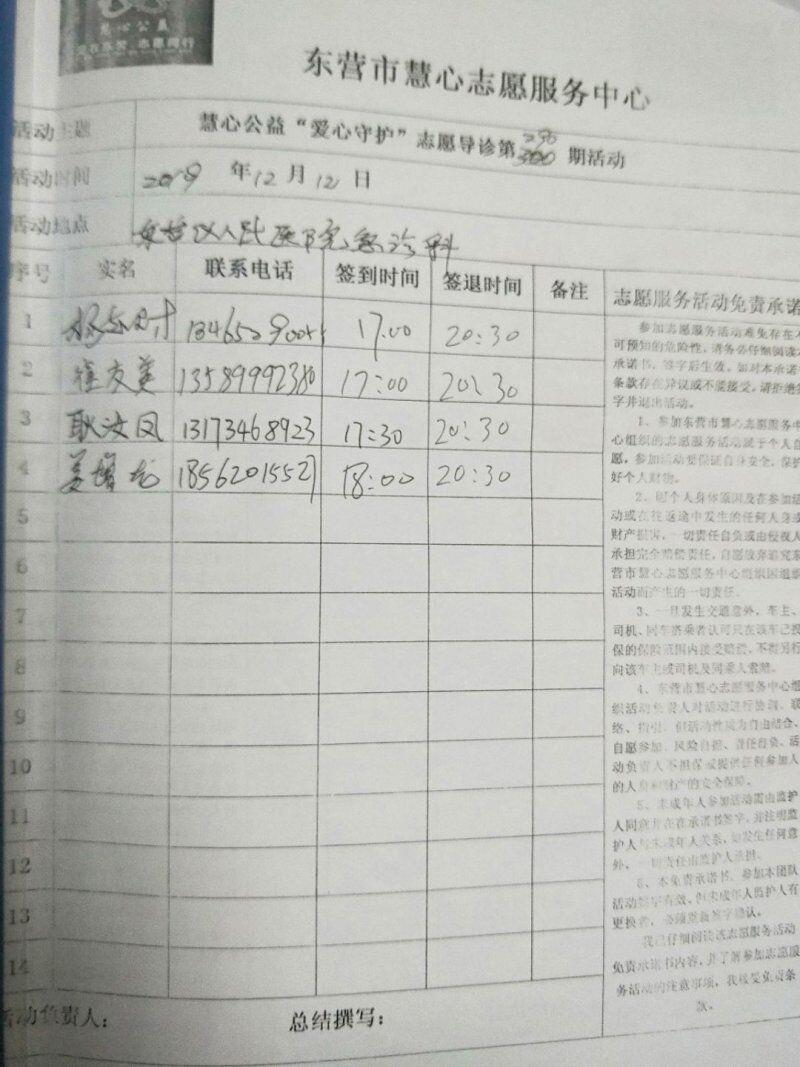 慧心公益
东营市慧心志愿服务中心
活动主题 慧心公益“爱心守护”志愿导诊第 期活动
活动时间 2019 年12月12日
活动地点 东营区人民医院急诊科
序号 实名 联系电话 签到时间 签退时间 备注 志愿服务活动免责承诺
1 17:00 20:30
2 崔友美 13589992380 17:00 20:30
3 耿汝凤 13173468923 17:30 20:30
4 姜增龙 18562015527 18:00 20:30
5
6
7
8
9
10
11
12
13
14
参加志愿服务活动难免存在不
可预知的危险性,请务必仔细阅读本
承诺书,签字后生效。如对本承诺书
条款存在异议或不能接受,请拒绝签
字并退出活动。
1、参加东营市慧心志愿服务中
心组织的志愿服务活动属于个人自
愿,参加活动要保证自身安全,保护
好个人财物。
2、因个人身体原因及在参加活
动或在往返途中发生的任何人身或
财产损害,一切责任自负或由侵权人
承担完全赔偿责任,自愿放弃追究东
营市慧心志愿服务中心组织因组织
活动而产生的一切责任。
3、一旦发生交通意外,车主、
司机、同车搭乘者认可只在该车已投
保的保险范围内接受赔偿,不得另行
向该车主或司机及同乘人索赔。
4、东营市慧心志愿服务中心组
织活动负责人对活动进行协调、联
络、指引,但活动性质为自由结合、
自愿参加、风险自担、责任自负。活
动负责人不担保或提供任何参加人
的人身和财产的安全保障。
5、未成年人参加活动需由监护
人同意并在在承诺书签字,并注明监
护人与未成年人关系,如发生任何意
外,一切责任由监护人承担。
6、本免责承诺书,参加本团队
活动签字有效,但未成年人监护人有
更换者,必须重新签字确认。
我已仔细阅读该志愿服务活动
免责承诺书内容,并了解参加志愿服
务活动的注意事项,我接受免责条
款。
活动负责人: 总结撰写: